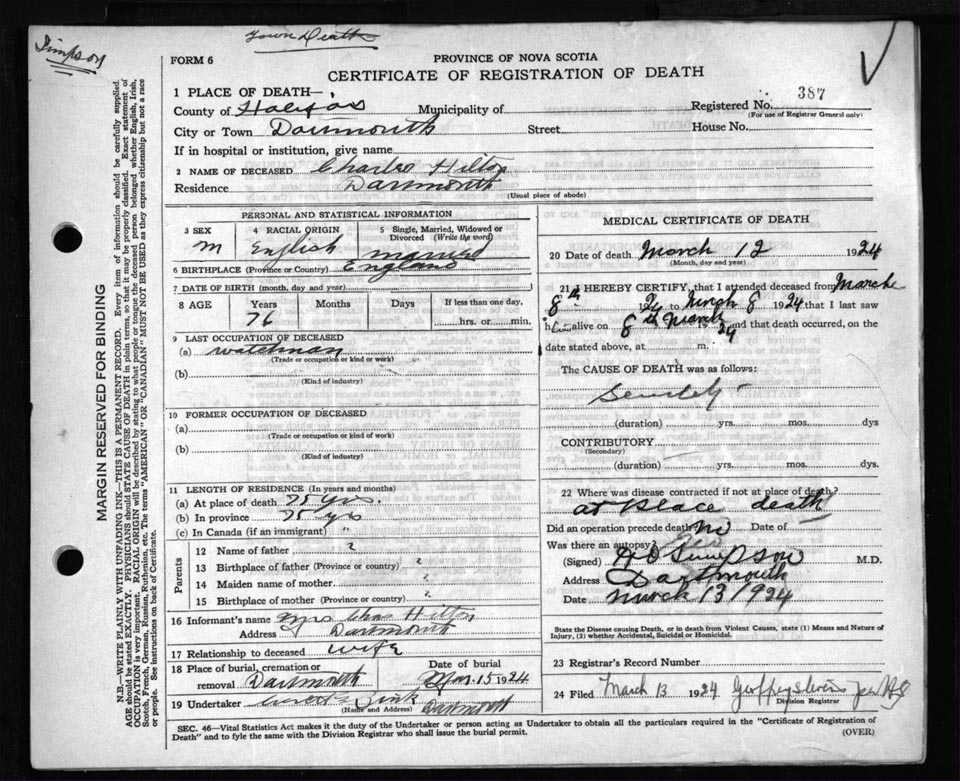 Simpson
Town Death
FORM 6
PROVINCE OF NOVA SCOTIA
CERTIFICATE OF REGISTRATION OF DEATH
1 PLACE OF DEATH—
County of Halifax Municipality of
Registered No. 387
(For use of Registrar General only)
City or Town Dartmouth Street House No.
If in hospital or institution, give name
2 NAME OF DECEASED Charles Hilton
Residence Dartmouth
(Usual place of abode)
MARGIN RESERVED FOR BINDING
N.B.—WRITE PLAINLY WITH UNFADING INK—THIS IS A PERMANENT RECORD. Every item of information should be carefully supplied.
AGE should be stated EXACTLY. PHYSICIANS should STATE CAUSE OF DEATH in plain terms, so that it may be properly classified. Exact statement of
OCCUPATION is very important. RACIAL ORIGIN will be described by stating to what people or tongue the deceased person belonged whether English, Irish,
Scotch, French, German, Russian, Ruthenian, etc. The terms "AMERICAN" OR "CANADIAN" MUST NOT BE USED as they express citizenship but not a race
or people. See instructions on back of Certificate.
PERSONAL AND STATISTICAL INFORMATION
3 SEX
M
4 RACIAL ORIGIN
English
5 Single, Married, Widowed or
Divorced (Write the word)
married
6 BIRTHPLACE (Province or Country) England
7 DATE OF BIRTH (month, day and year)
8 AGE Years Months Days If less than one day,
76 hrs. or min.
9 LAST OCCUPATION OF DECEASED
(a) watchman
(Trade or occupation or kind or work)
(b)
(Kind of industry)
10 FORMER OCCUPATION OF DECEASED
(a)
(Trade or occupation or kind of work)
(b)
(Kind of industry)
11 LENGTH OF RESIDENCE (In years and months)
(a) At place of death 75 yrs.
(b) In province 75 yrs
(c) In Canada (if an immigrant) "
Parents
12 Name of father ?
13 Birthplace of father (Province or country) ?
14 Maiden name of mother ?
15 Birthplace of mother (Province or country) ?
16 Informant's name Mrs Chas Hilton
Address Dartmouth
17 Relationship to deceased wife
18 Place of burial, cremation or
removal Dartmouth
Date of burial
Mar. 15 1924
19 Undertaker Zink Dartmouth
(Name and Address)
MEDICAL CERTIFICATE OF DEATH
20 Date of death March 12 1924
(Month, day and year)
21 I HEREBY CERTIFY, that I attended deceased from March
8th 24 to March 8 1924 that I last saw
h alive on 8th March 24 and that death occurred, on the
date stated above, at m.
The CAUSE OF DEATH was as follows:
Senility
(duration) yrs. mos. dys
CONTRIBUTORY
(Secondary)
(duration) yrs. mos. dys.
22 Where was disease contracted if not at place of death?
at place death
Did an operation precede death no Date of
Was there an autopsy?
(Signed) Simpson M.D.
Address Dartmouth
Date March 13 1924
State the Disease causing Death, or in death from Violent Causes, state (1) Means and Nature of
Injury, (2) whether Accidental, Suicidal or Homicidal.
23 Registrar's Record Number
24 Filed March 13 1924
Division Registrar
SEC. 46—Vital Statistics Act makes it the duty of the Undertaker or person acting as Undertaker to obtain all the particulars required in the "Certificate of Registration of
Death" and to fyle the same with the Division Registrar who shall issue the burial permit.
(OVER)